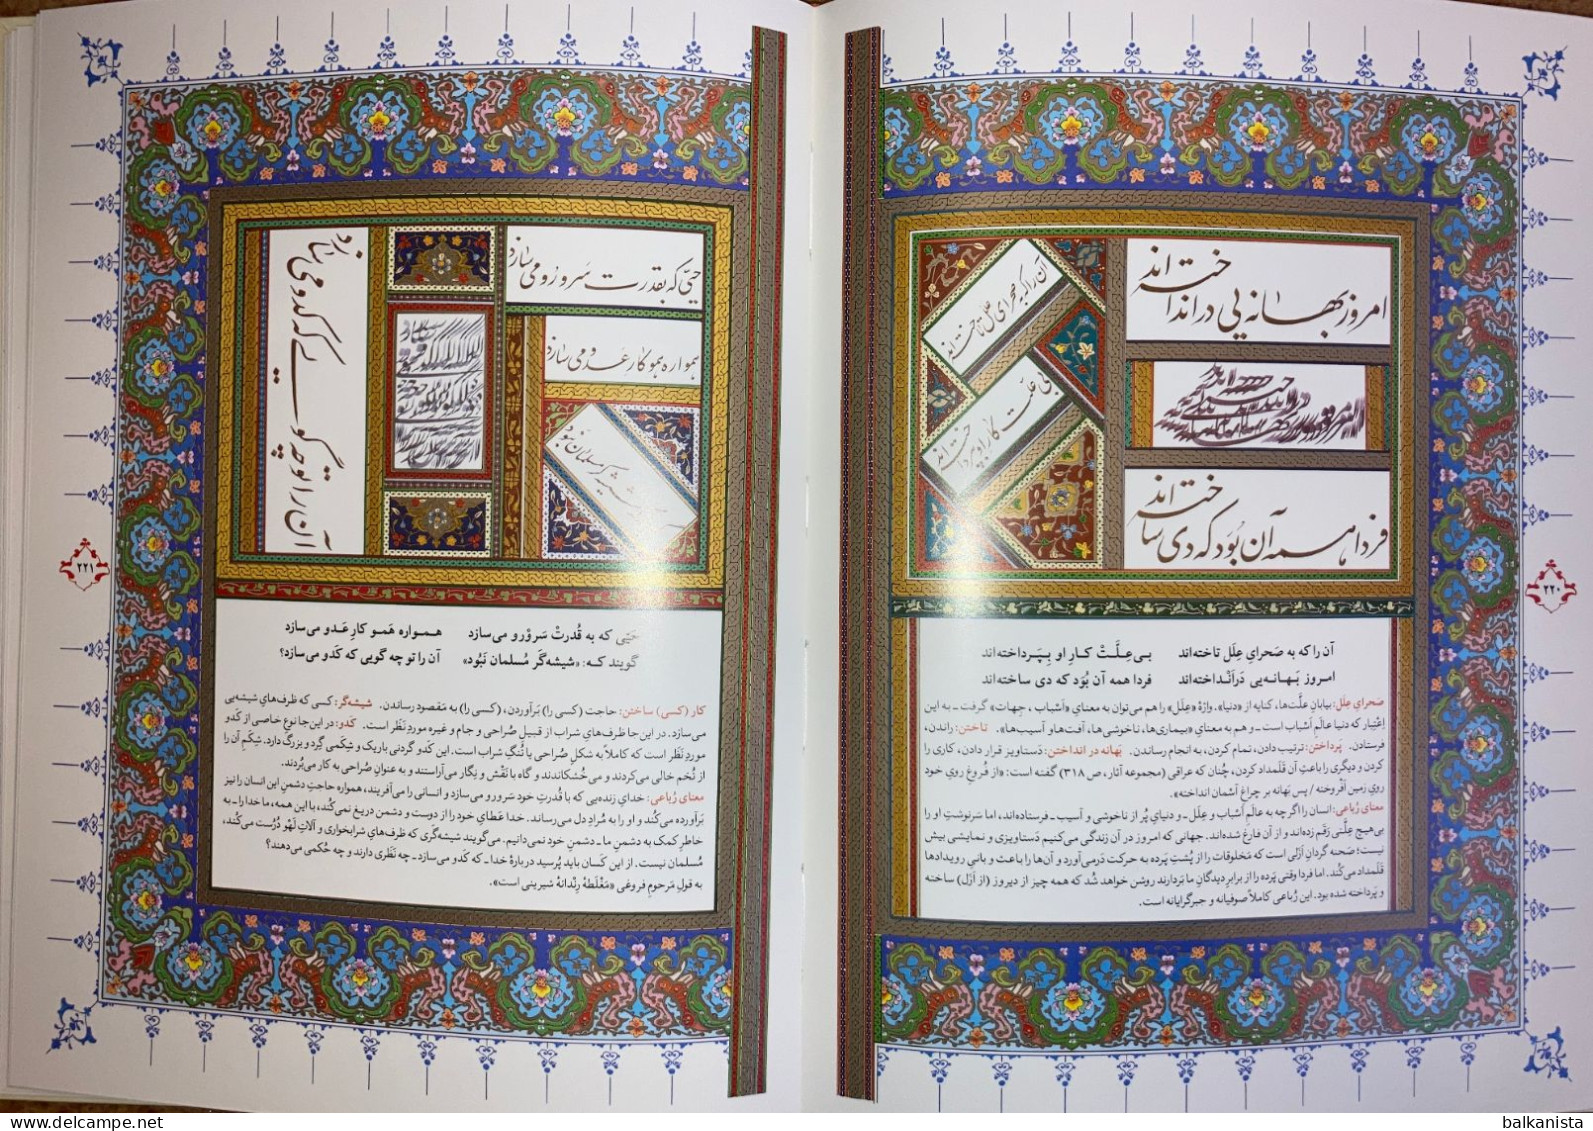 امروز بهانه‌یی درانداخته‌اند
فردا همه آن بُوَد که دی ساخته‌اند
آن را که به صحرای علل تاخته‌اند
بی علّت کار او بپرداخته‌اند
آن را که به صحرای عِلَل تاخته‌اند بی‌عِلَّتْ کارِ او بِپَرداخته‌اند
امروز بَهانه‌یی دَرانْداخته‌اند فردا همه آن بُوَد که دی ساخته‌اند
صَحرای عِلَل: بیابان علّت‌ها، کنایه از «دنیا». واژهٔ «عِلَل» را هم می‌توان به معنایِ «اَسْباب، جِهات» گرفت ـ به این
اِعْتِبار که دنیا عالَمِ اَسْباب است ـ و هم به معنایِ «بیماری‌ها، ناخوشی‌ها، آفت‌ها و آسیب‌ها». تاختن: راندن،
فرستادن. پَرداختن: ترتیب دادن، تمام کردن، به انجام رساندن. بَهانه در انداختن: دستاویز قرار دادن، کاری را
کردن و دیگری را باعثِ آن قَلَمداد کردن، چُنان که عراقی (مجموعه آثار، ص ۳۱۸) گفته است: «از فُروغِ رویِ خود
رویِ زمین اَفروخته / پس بَهانه بر چراغِ آسْمان انداخته».
معنایِ رُباعی: انسان را اگرچه به عالَمِ اَسْباب و عِلَل ـ و دنیایِ پُر از ناخوشی و آسیب ـ فرستاده‌اند، اما سَرنوشتِ او را
بی‌هیچ عِلَّتی رَقَم زده‌اند و از آن فارغ شده‌اند. جهانی که امروز در آن زندگی می‌کنیم دَستاویزی و نمایشی بیش
نیست؛ صَحنه گَردانِ اَزَلی است که مَخلوقات را از پُشتِ پَرده به حرکت دَرمی‌آورد و آن‌ها را باعث و بانیِ رویدادها
قَلَمداد می‌کُند. اما فردا وقتی پَرده را از برابرِ دیدگانِ ما بَردارند روشن خواهد شُد که همه چیز از دیروز (از اَزَل) ساخته
و پَرداخته شده بود. این رُباعی کاملاً صوفیانه و جبرگرایانه است.
۲۲۰
حیّی که بقدرت سر و رو می‌سازد
همواره همو کار عدو می‌سازد
آن را تو چه گویی که کدو می‌سازد
حَیّی که به قُدرتْ سَر و رُو می‌سازد هـمـواره هَمـو کارِ عَـدو می‌سازد
گویند کـه: «شیشه‌گَر مُسلمان نَبُوَد» آن را تو چه گویی که کَدو می‌سازد؟
کار (کسی) ساختن: حاجت (کسی را) بَرآوردن، (کسی را) به مَقصود رساندن. شیشه‌گر: کسی که ظرف‌هایِ شیشه‌یی
می‌سازد. در این جا ظرف‌هایِ شراب از قبیل صُراحی و جام و غیره موردِ نَظَر است. کَدو: در این‌جا نوعِ خاصی از کَدو
موردِ نَظَر است که کاملاً به شکلِ صُراحی یا تُنگِ شراب است. این کَدو گردنی باریک و شِکَمی گِرد و بزرگ دارد. شِکَمِ آن را
از تُخم خالی می‌کردند و می‌خُشکاندند و گاه با نَقْش و نِگار می‌آراستند و به عنوانِ صُراحی به کار می‌بُردند.
معنای رُباعی: خدایِ زنده‌یی که با قُدرتِ خود سَر و رو می‌سازد و انسانی را می‌آفریند، همواره حاجتِ دشمنِ این انسان را نیز
بَرآورده می‌کُند و او را به مُرادِ دل می‌رساند. خدا عَطایِ خود را از دوست و دشمن دریغ نمی‌کُند، با این همه، ما خدا را ـ به
خاطرِ کمک به دشمنِ ما ـ دشمنِ خود نمی‌دانیم. می‌گویند شیشه‌گری که ظرف‌هایِ شرابخواری و آلاتِ لَهْو دُرُست می‌کُند،
مُسلمان نیست. از این کَسان باید پُرسید دربارهٔ خدا ـ که کَدو می‌سازد ـ چه نَظَری دارند و چه حُکمی می‌دهند؟
به قولِ مَرحومِ فروغی «مَغْلَطهٔ رِنْدانهٔ شیرینی است».
۲۲۱
balkanista